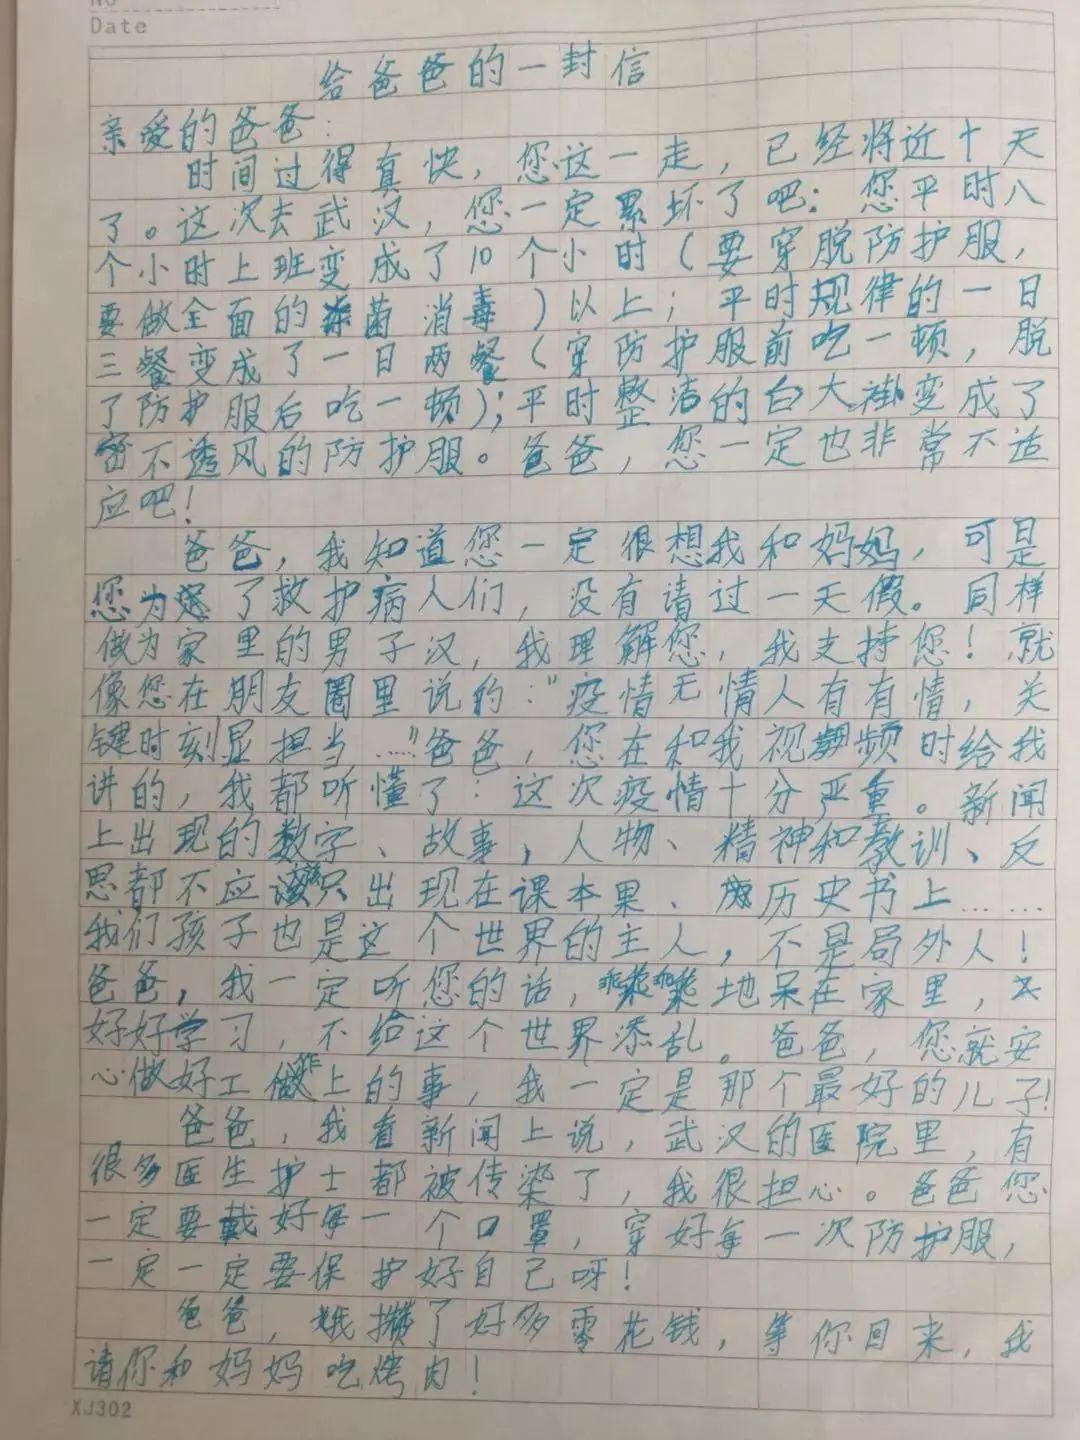 No
Date
给爸爸的一封信
亲爱的爸爸：
时间过得真快，您这一走，已经将近十天
了。这次去武汉，您一定累坏了吧：您平时八
个小时上班变成了10个小时（要穿脱防护服，
要做全面的杀菌消毒）以上；平时规律的一日
三餐变成了一日两餐（穿防护服前吃一顿，脱
了防护服后吃一顿）；平时整洁的白大褂变成了
密不透风的防护服。爸爸，您一定也非常不适
应吧！
爸爸，我知道您一定很想我和妈妈，可是
您为了救护病人们，没有请过一天假。同样
做为家里的男子汉，我理解您，我支持您！就
像您在朋友圈里说的：“疫情无情人有有情，关
键时刻显担当……”爸爸，您在和我视频时给我
讲的，我都听懂了：这次疫情十分严重。新闻
上出现的数字、故事，人物、精神和教训、反
思都不应该只出现在课本果、或历史书上……
我们孩子也是这个世界的主人，不是局外人！
爸爸，我一定听您的话，乖乖地呆在家里，
好好学习，不给这个世界添乱。爸爸，您就安
心做好工作上的事，我一定是那个最好的儿子！
爸爸，我看新闻上说，武汉的医院里，有
很多医生护士都被传染了，我很担心。爸爸您
一定要戴好每一个口罩，穿好每一次防护服，
一定一定要保护好自己呀！
爸爸，我攒了好多零花钱，等你回来，我
请你和妈妈吃烤肉！
XJ302